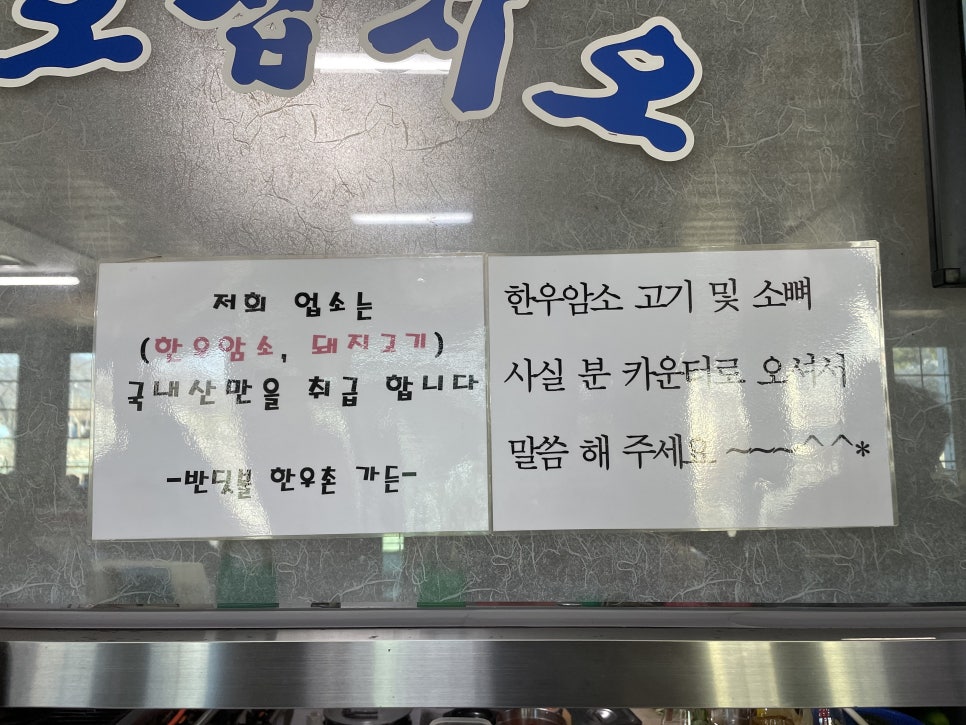 오십시오
저희 업소는
(한우암소, 돼지고기)
국내산만을 취급 합니다
-반딧불 한우촌 가든-
한우암소 고기 및 소뼈
사실 분 카운터로 오셔서
말씀 해 주세요 ~~~^^*